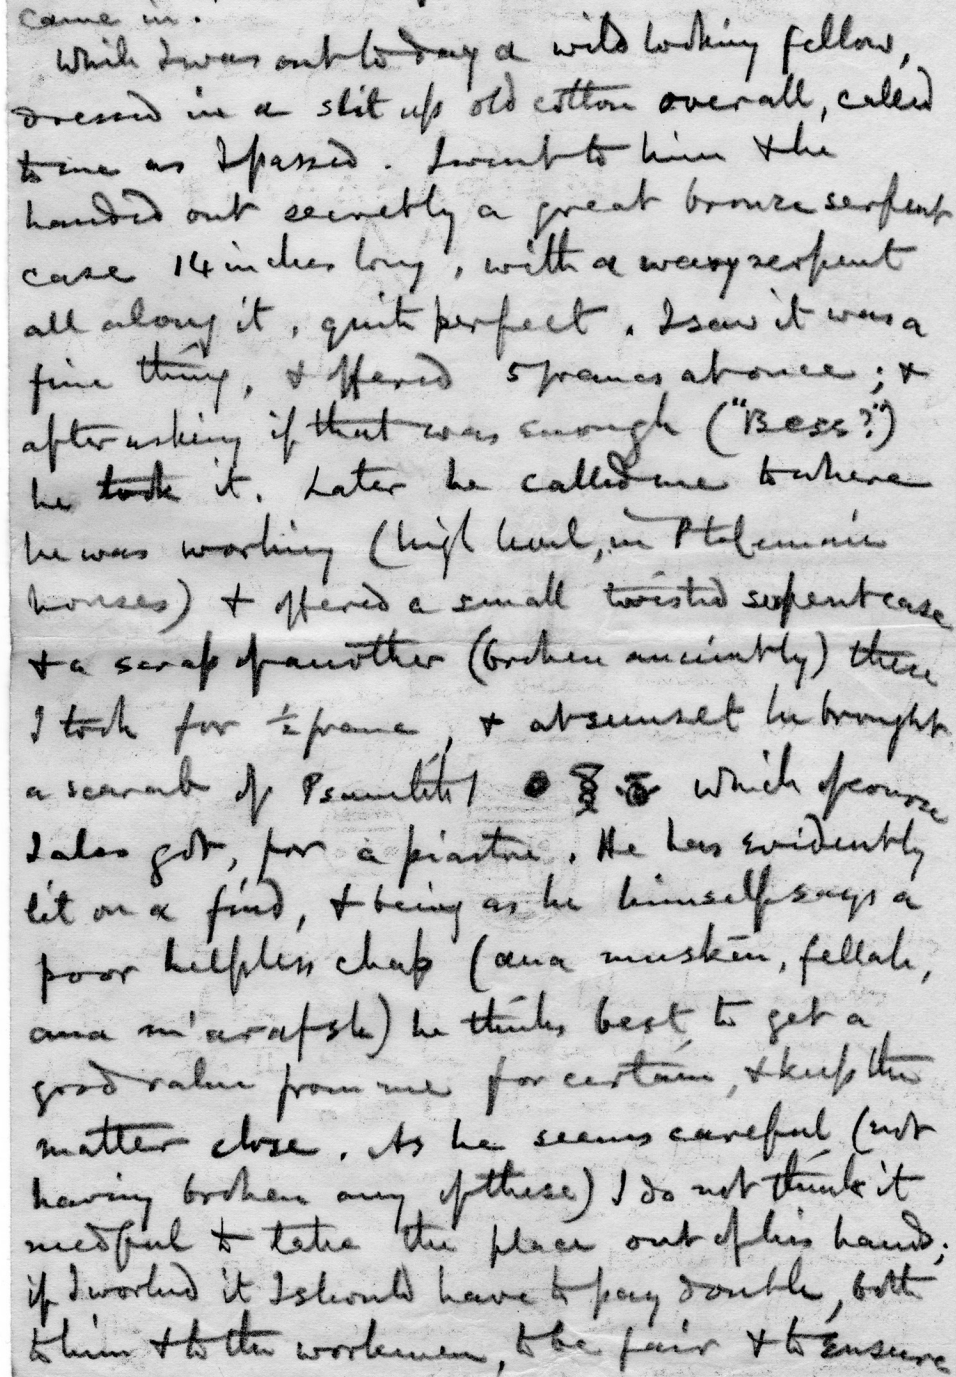 came in.
While I was out to day a wild looking fellow,
dressed in a slit up old cotton overall, called
to me as I passed. I went to him & he
handed out secretly a great bronze serpent
case 14 inches long, with a wavy serpent
all along it, quite perfect. I saw it was a
fine thing, & offered 5 francs at once; &
after asking if that was enough ("Bess?")
he took it. Later he called me to where
he was working (high level, in Ptolemaic
houses) & offered a small twisted serpent case
& a scrap of another (broken anciently) these
I took for ½ franc, & at sunset he brought
a scarab of Psamtik I which of course
I also got, for a piastre. He has evidently
lit on a find, & being as he himself says a
poor helpless chap (ana muskīn, fellah,
ana m'arafsh) he thinks best to get a
good value from me for certain, & keep the
matter close. As he seems careful (not
having broken any of these) I do not think it
needful to take the place out of his hands;
if I worked it I should have to pay double, both
to him & to the workmen, to be fair & to ensure